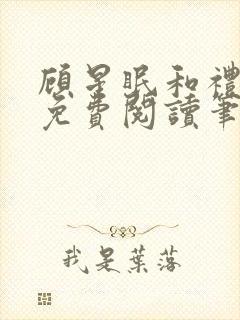 顾星眠和禮
免費閱讀筆
我是葉落